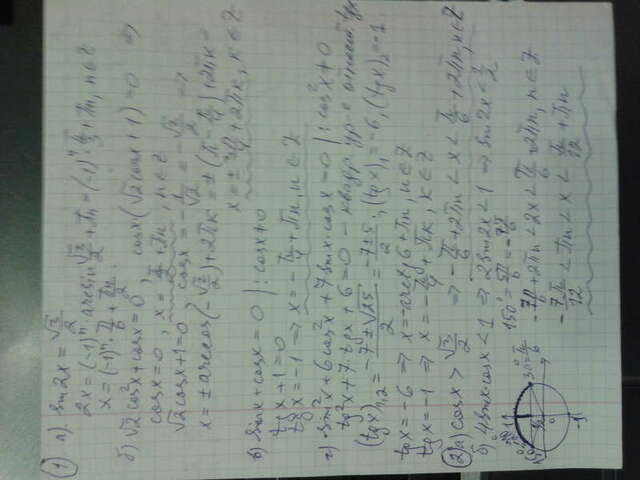 ① а) sin2x = √3/2
2x = (-1)ⁿ arcsin √3/2 + πn = (-1)ⁿ π/3 + πn, n∈Z
x = (-1)ⁿ · π/6 + πn/2
б) √2 cos²x + cosx = 0 cosx(√2 cosx + 1) = 0 ⇒
cosx = 0, x = π/2 + πn, n∈Z
√2 cosx + 1 = 0 cosx = -1/√2 = -√2/2 ⇒
x = ± arccos(-√2/2) + 2πk = ±(π - π/4) + 2πk
x = ± 3π/4 + 2πk, k∈Z
в) sinx + cosx = 0 | : cosx ≠ 0
tgx + 1 = 0
tgx = -1 ⇒ x = -π/4 + πn, n∈Z
г) sin²x + 6cos²x + 7sinx·cosx = 0 | : cos²x ≠ 0
tg²x + 7·tgx + 6 = 0 - квадр. ур-е относит.
(tgx)₁,₂ = (-7 ± √25)/2 = (-7 ± 5)/2; (tgx)₁ = -6, (tgx)₂ = -1
tgx = -6 ⇒ x = -arctg 6 + πn, n∈Z
tgx = -1 ⇒ x = -π/4 + πk, k∈Z
② а) cosx > √3/2 ⇒ -π/6 + 2πn < x < π/6 + 2πn, n∈Z
б) 4sinx·cosx < 1 ⇒ 2sin2x < 1 ⇒ sin2x < 1/2
150° = 5π/6
-7π/6 + 2πn < 2x < π/6 + 2πn, n∈Z
-7π/12 + πn < x < π/12 + πn
30° = π/6